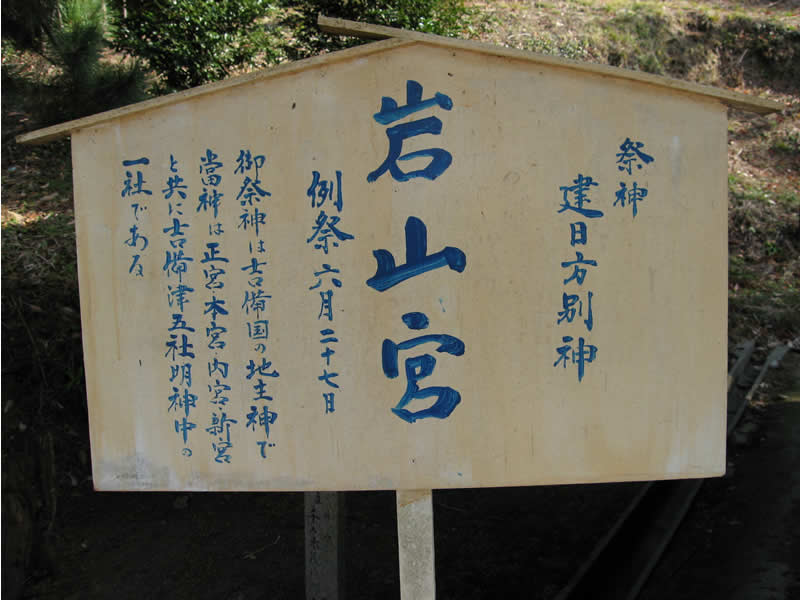 祭神
建日方別神
岩山宮
例祭 六月二十七日
御祭神は吉備国の地主神で
當神は正宮・本宮・内宮・新宮
と共に吉備津五社明神中の
一社である